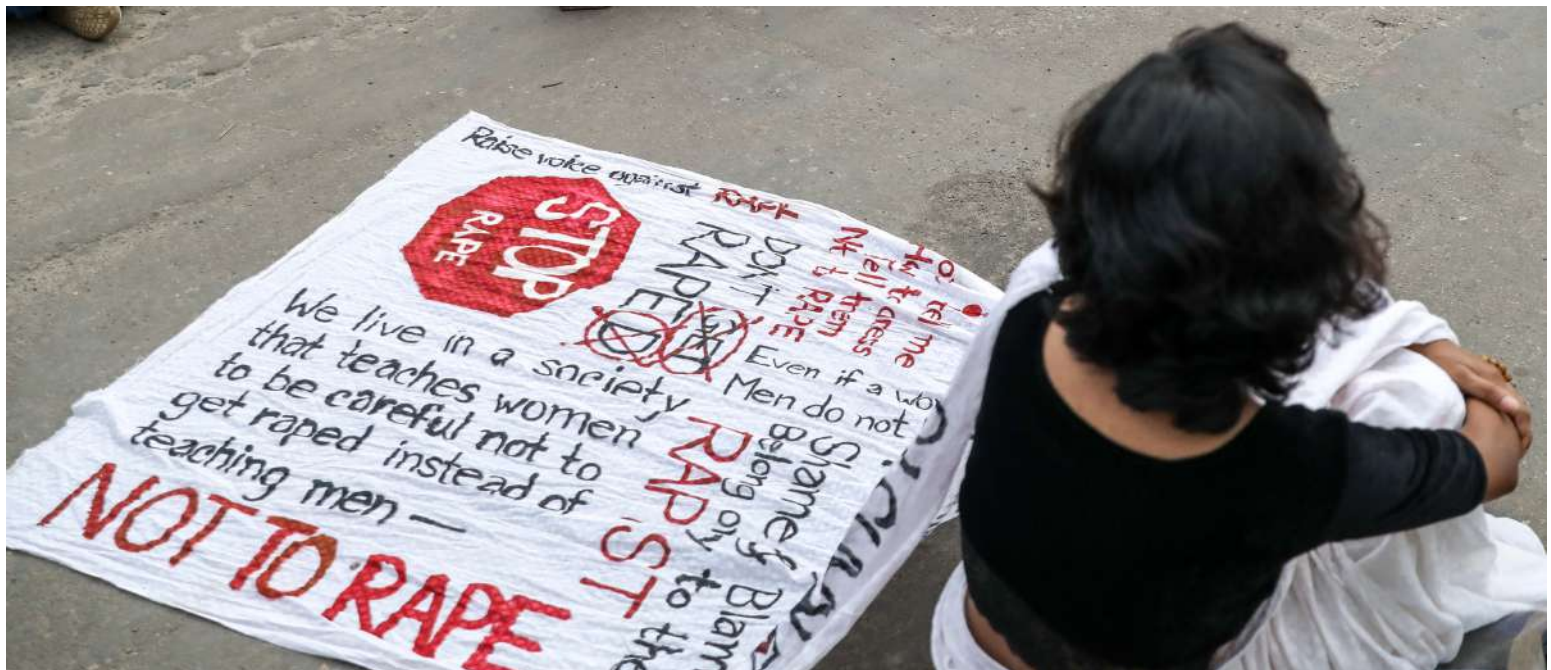 Raise voice against RAPE
STOP
RAPE
We live in a society
that teaches women
to be careful not to
get raped instead of
teaching men —
NOT TO RAPE
DON'T GET
RAPED
tel me
Hw to dress
Tell them
Nt to RAPE
Even if a
Men do not
Shame &
Belong oly to the
RAPIST